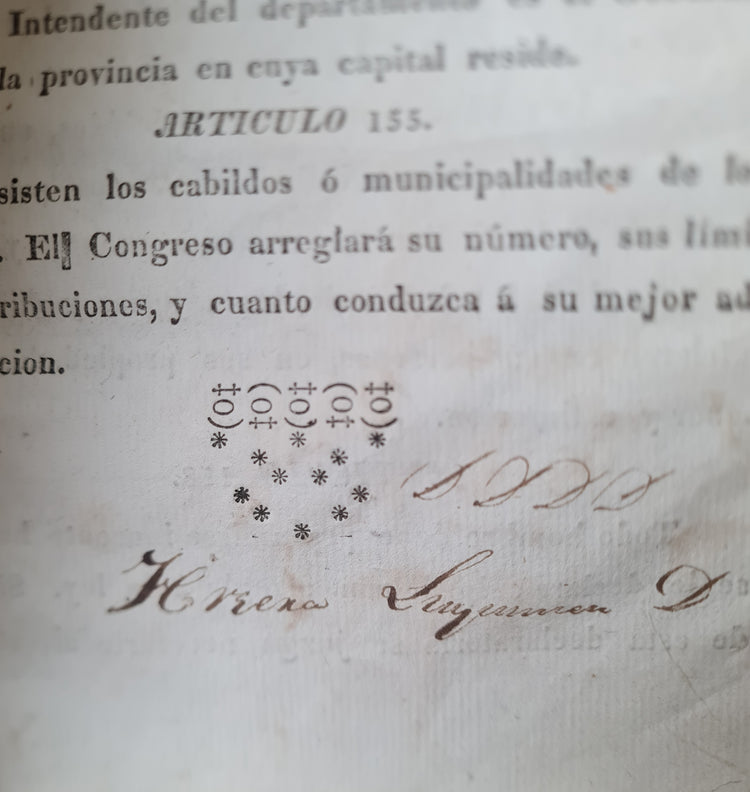 Intendente del departamento
la provincia en cuya capital reside.
ARTICULO 155.
sisten los cabildos ó municipalidades de
. El Congreso arreglará su número, sus lími
ribuciones, y cuanto conduzca á su mejor ad
cion.
D D D D
D